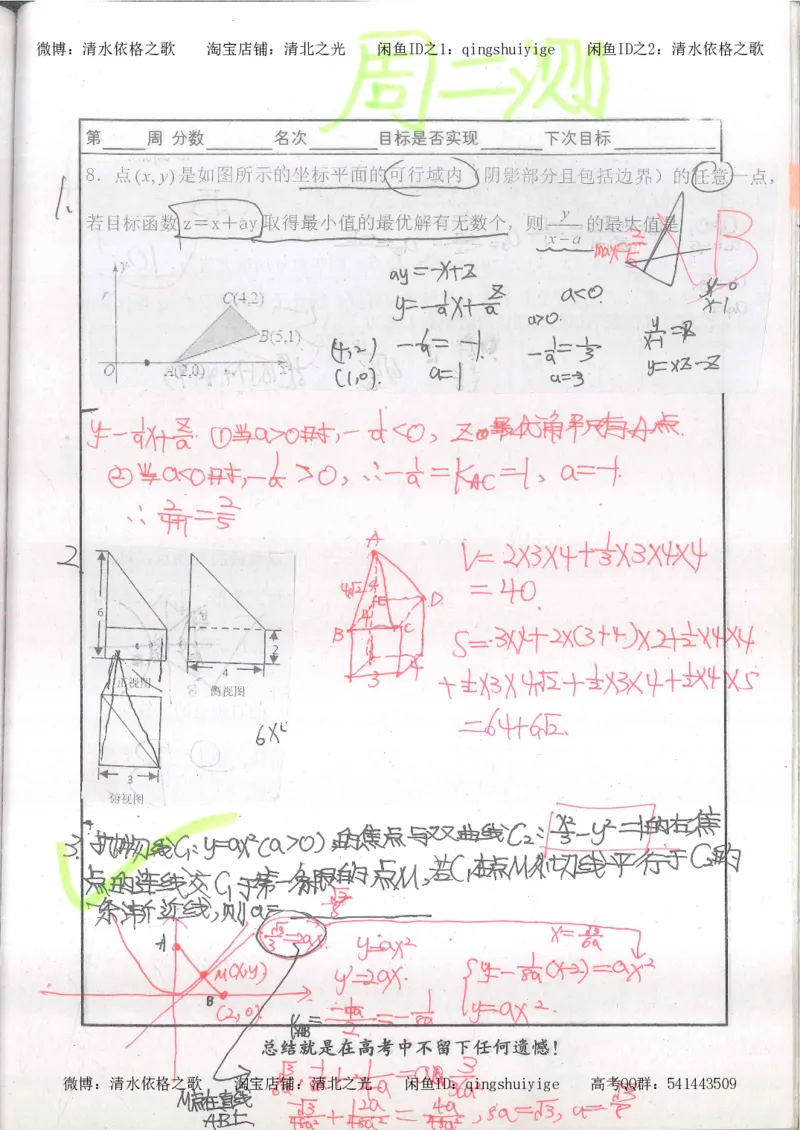 微博：清水依格之歌 淘宝店铺：清北之光 闲鱼ID之1：qingshuiyige 闲鱼ID之2：清水依格之歌
周二测
第____周 分数____名次____目标是否实现____下次目标____
1.
8．点(x,y)是如图所示的坐标平面的可行域内（阴影部分且包括边界）的任意一点，
若目标函数z＝x＋ay取得最小值的最优解有无数个，则 y/(x-a) 的最大值是
max=2/5
B
ay=-x+z
y=-1/a x+z/a
a<0
a>0
y-0
x-1
y/(x-1)=k
-1/a=-1
-1/a=1/3
a=1
a=-3
y=xz-z
(4,2)
(1,0)
y
C(4,2)
B(5,1)
O
A(2,0)
x
y=-1/a x+z/a ①当a>0时,-1/a<0, z的最优解只有A点.
②当a<0时,-1/a>0, ∴-1/a=kAC=1, a=-1.
∴2/(4+1)=2/5
2.
6
2
4
正视图
侧视图
3
俯视图
A
4√2
4
E
D
B
C
4
3
V=2×3×4+1/3×3×4×4
=40.
S=3×4+2×(3+4)×2+1/2×4×4
+1/2×3×4√2+1/2×3×4+1/2×4×5
=64+6√2.
3.抛物线C1:y=ax²(a>0),的焦点与双曲线C2:x²/3-y²=1的右焦
点的连线交C1于第一象限的点M,若C1在点M处切线平行于C2的
一条渐近线,则a=
√3/8
A
M(x,y)
B
(2,0)
√3/3=2ax
y=ax²
y'=2ax.
x=√3/6a
y=-1/8a(x-2)=ax²
y=ax².
kAB=
=-1/8a
总结就是在高考中不留下任何遗憾！
微博：清水依格之歌 淘宝店铺：清北之光 闲鱼ID：qingshuiyige 高考QQ群：541443509
M点在直线
AB上
8a=√3, a=√3/8